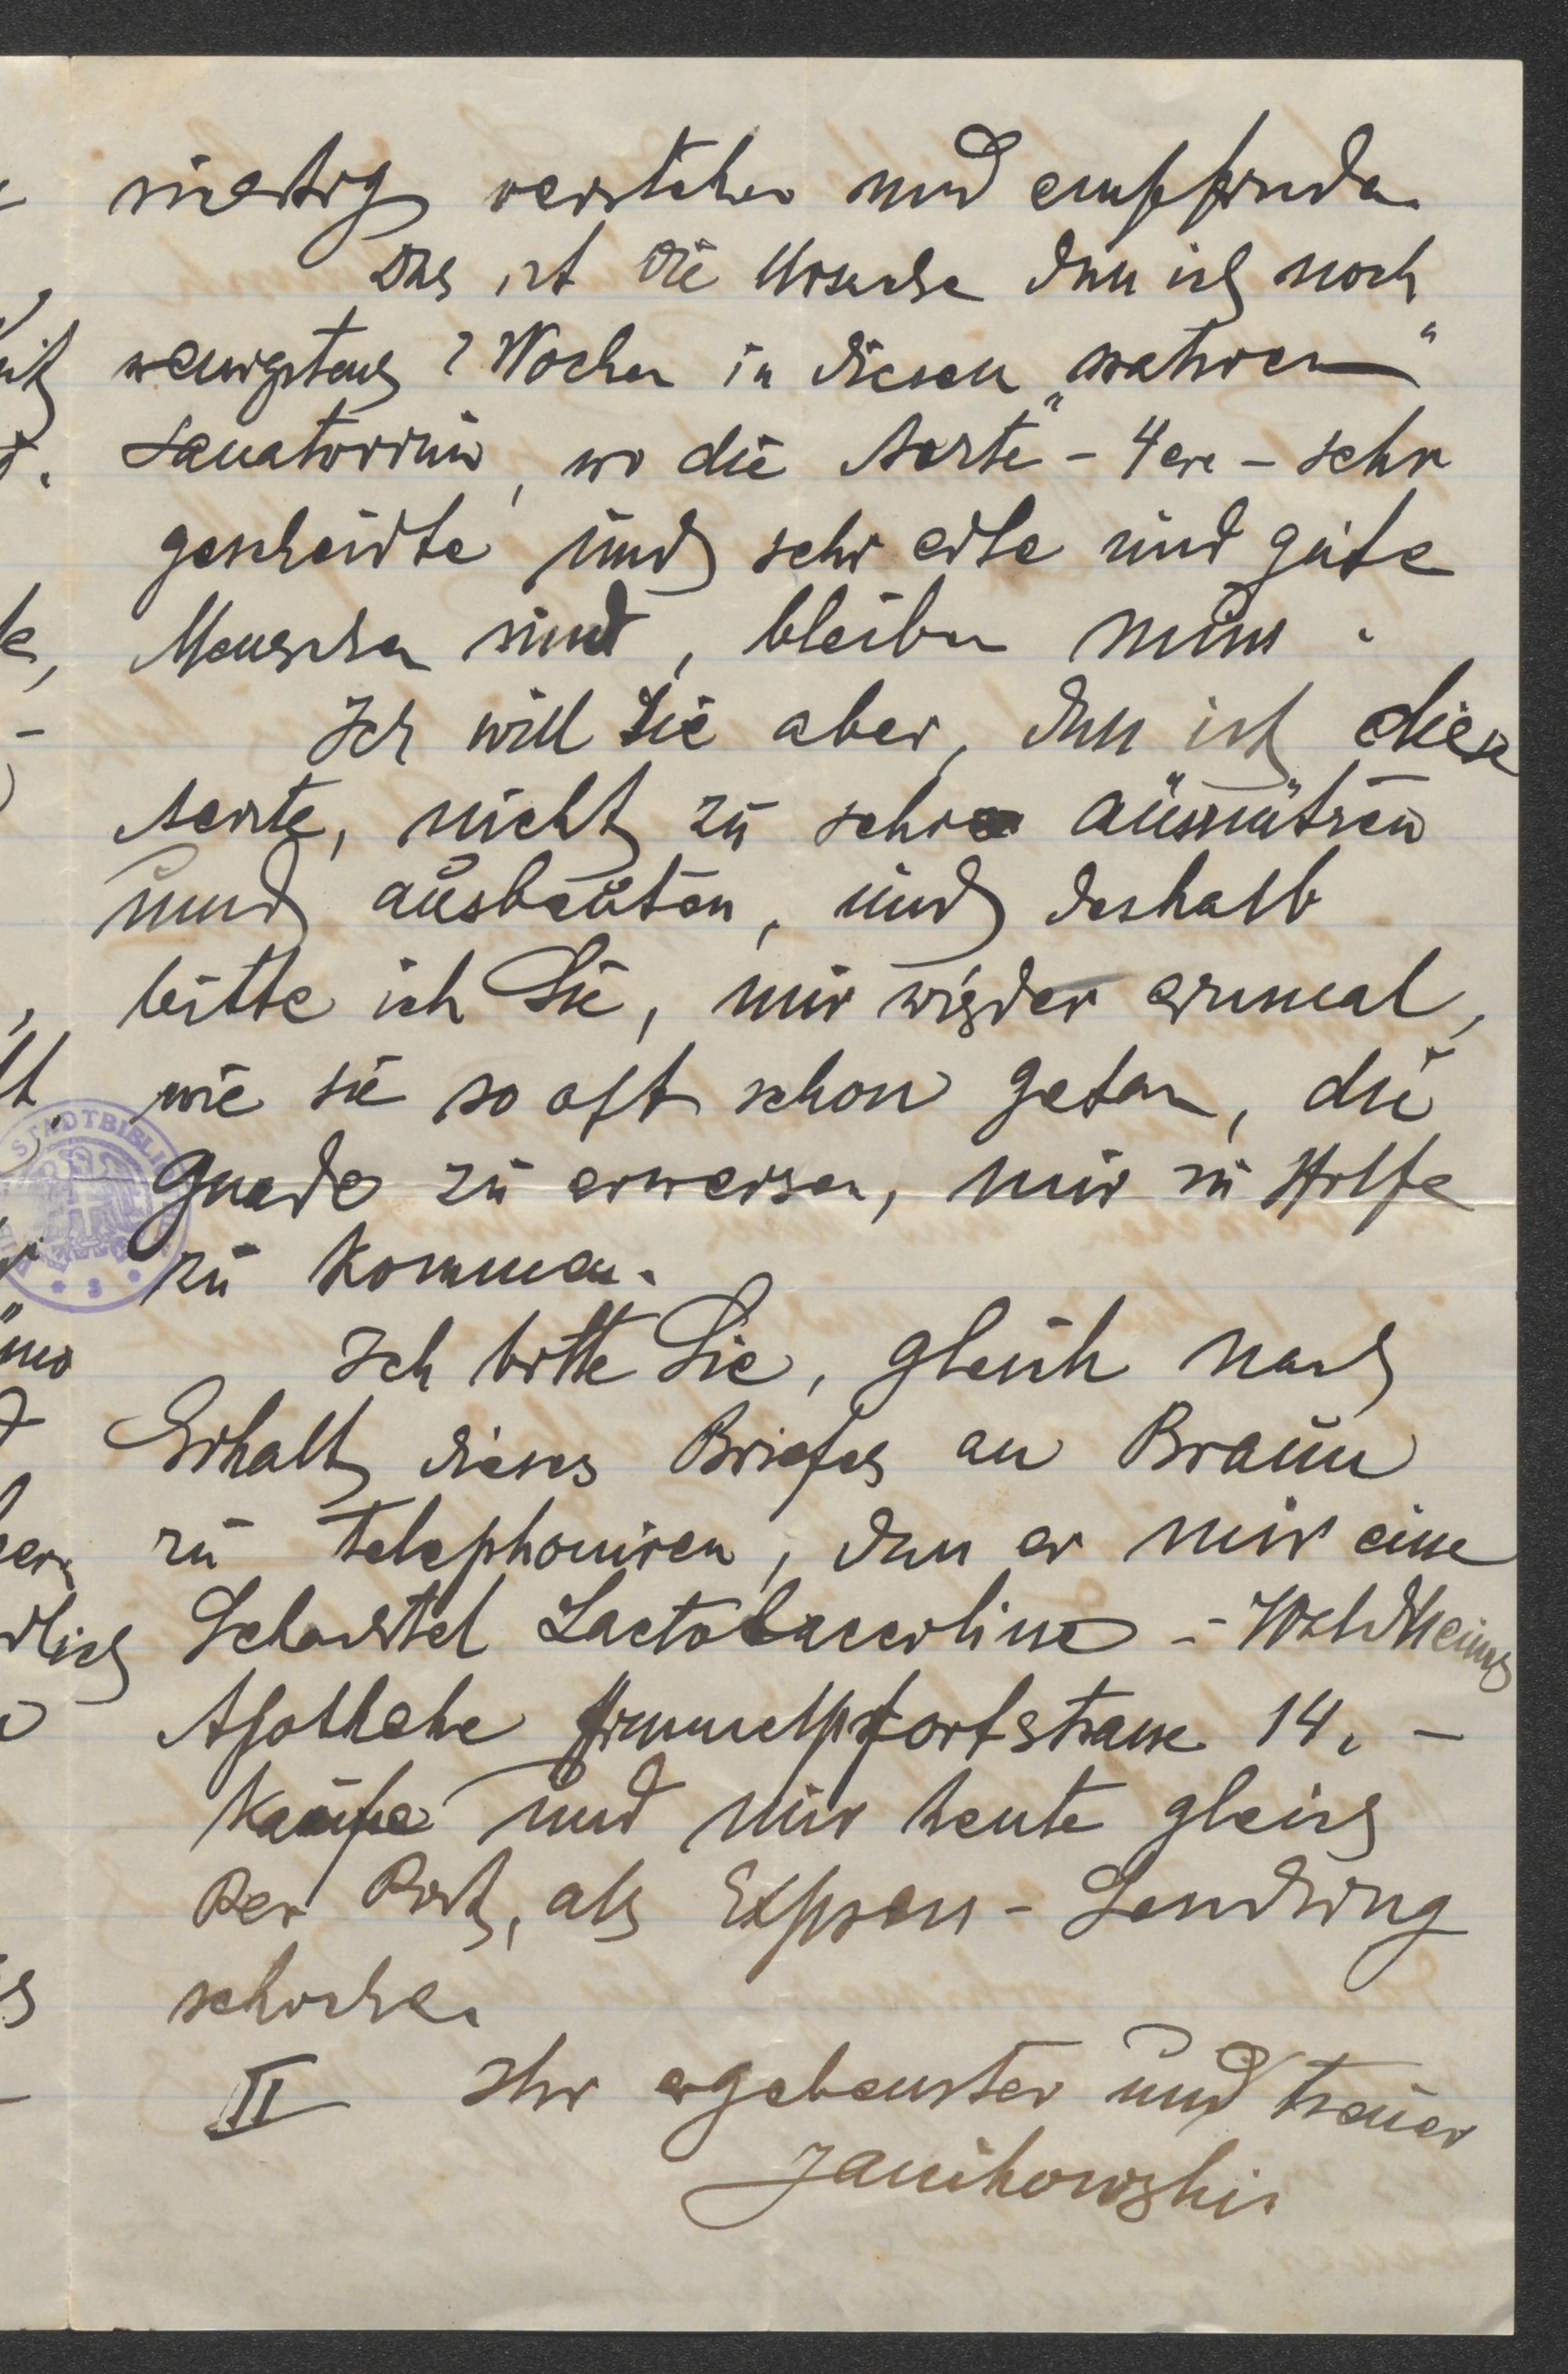 verstehen und empfinden
Das ist die Ursache dass ich noch
wenigstens 2 Wochen in diesem „wahren“
Sanatorium, wo die Aerzte - 4ere - sehr
gescheidte und sehr edle und gute
Menschen sind, bleiben muss.
Ich will Sie aber, dass ist diese
Aerzte, nicht zu sehr ausnützen
und ausbeuten, und deshalb
bitte ich Sie, mir wieder einmal,
wie sie so oft schon getan, die
Gnade zu erweisen, mir zu Hilfe
zu kommen.
Ich bitte Sie, gleich nach
Erhalt dieses Briefes an Braun
zu telephoniren, dass er mir eine
Schachtel Lactobacilline - Waldheims
Apotheke Himmelpfortstrasse 14. -
kaufe und mir heute gleich
Per Post, als Express-Sendung
schicke.
II Ihr ergebenster und treuer
Janikowski.
STADTBIBLI
3